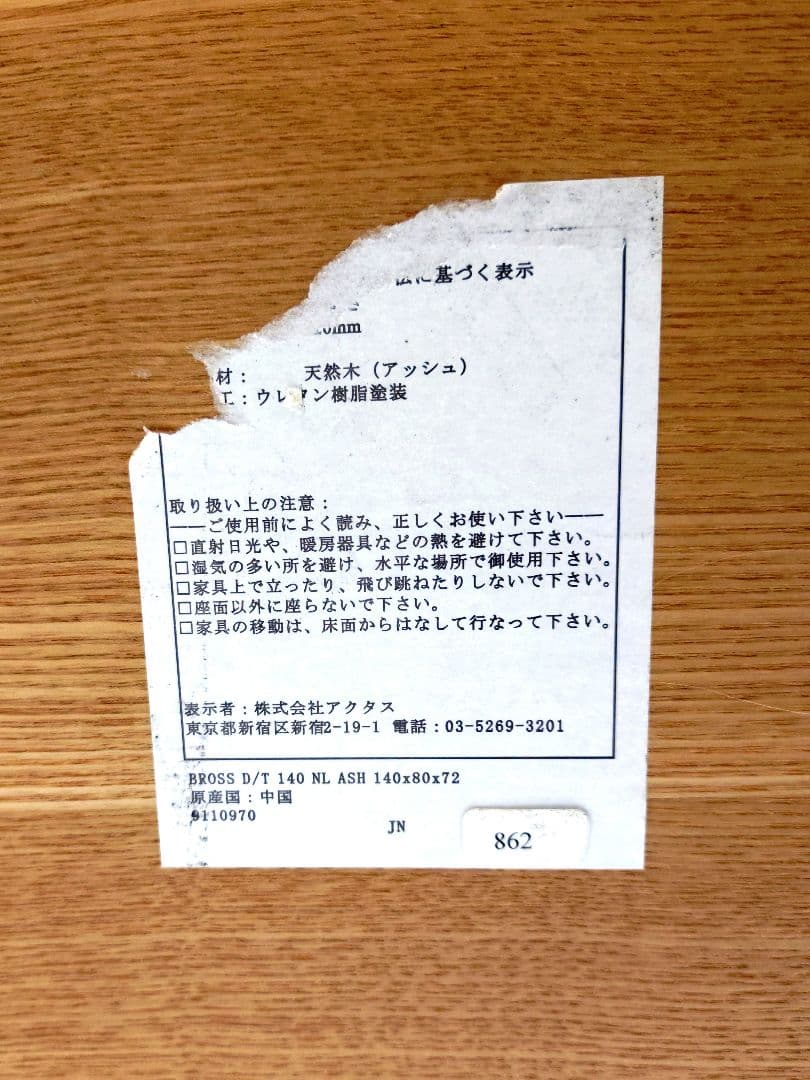 に基づく表示
mm
材： 天然木（アッシュ）
工：ウレタン樹脂塗装
取り扱い上の注意：
――ご使用前によく読み、正しくお使い下さい――
□直射日光や、暖房器具などの熱を避けて下さい。
□湿気の多い所を避け、水平な場所で御使用下さい。
□家具上で立ったり、飛び跳ねたりしないで下さい。
□座面以外に座らないで下さい。
□家具の移動は、床面からはなして行なって下さい。
表示者：株式会社アクタス
東京都新宿区新宿2-19-1 電話：03-5269-3201
BROSS D/T 140 NL ASH 140x80x72
原産国：中国
9110970
JN
862